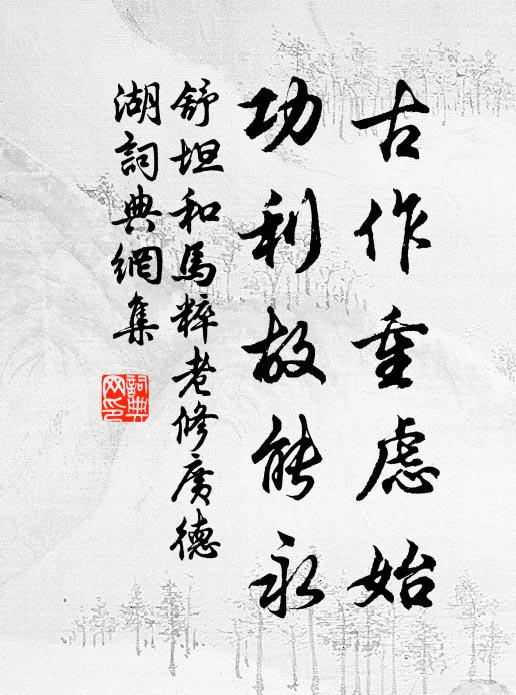 古作重虑始
功利故能永
舒坦和馬粹老修廣德
湖詞典網集
詞典網印